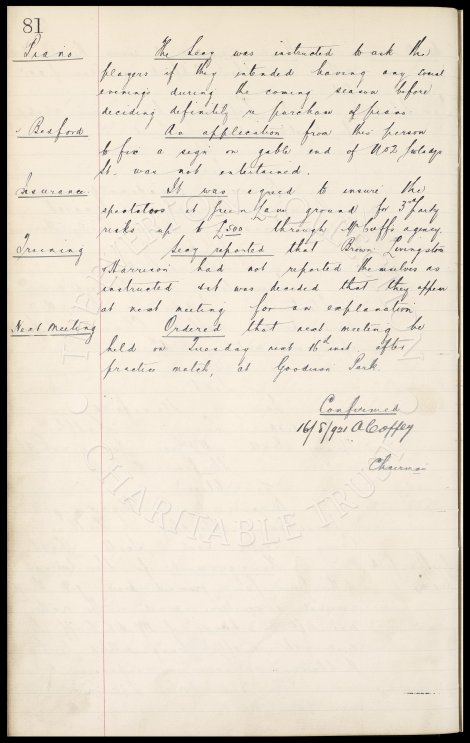 81
Piano The Secy was instructed to ask the
players if they intended having any social
evenings during the coming season before
deciding definitely re purchase of piano
Bedford An application from this person
to fix a sign on gable end of No 2
St. was not entertained.
Insurance. It was agreed to insure the
spectators at Green Lane ground for 3rd party
risks up to £500 through Mr Cuff's agency.
Training Secy reported that Brown Livingston
& Harrison had not reported themselves as
instructed & it was decided that they appear
at next meeting for an explanation
Next Meeting Ordered that next meeting be
held on Tuesday next 16th inst, after
practice match, at Goodison Park.
Confirmed
16/8/921 A Coffey
Chairman
CHARITABLE TRUST